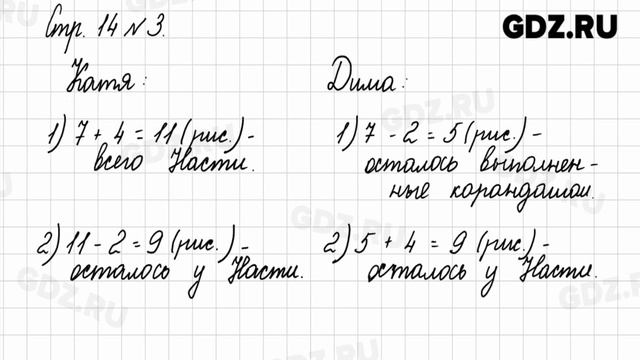 Стр. 14 № 3.
GDZ.RU
Катя:
1) 7 + 4 = 11 (рис.) -
всего Насти.
2) 11 - 2 = 9 (рис.) -
осталось у Насти.
Дима:
1) 7 - 2 = 5 (рис.) -
осталось выполнен-
ные карандашом.
2) 5 + 4 = 9 (рис.) -
осталось у Насти.
GDZ.RU
GDZ.RU
GDZ.RU
GDZ.RU